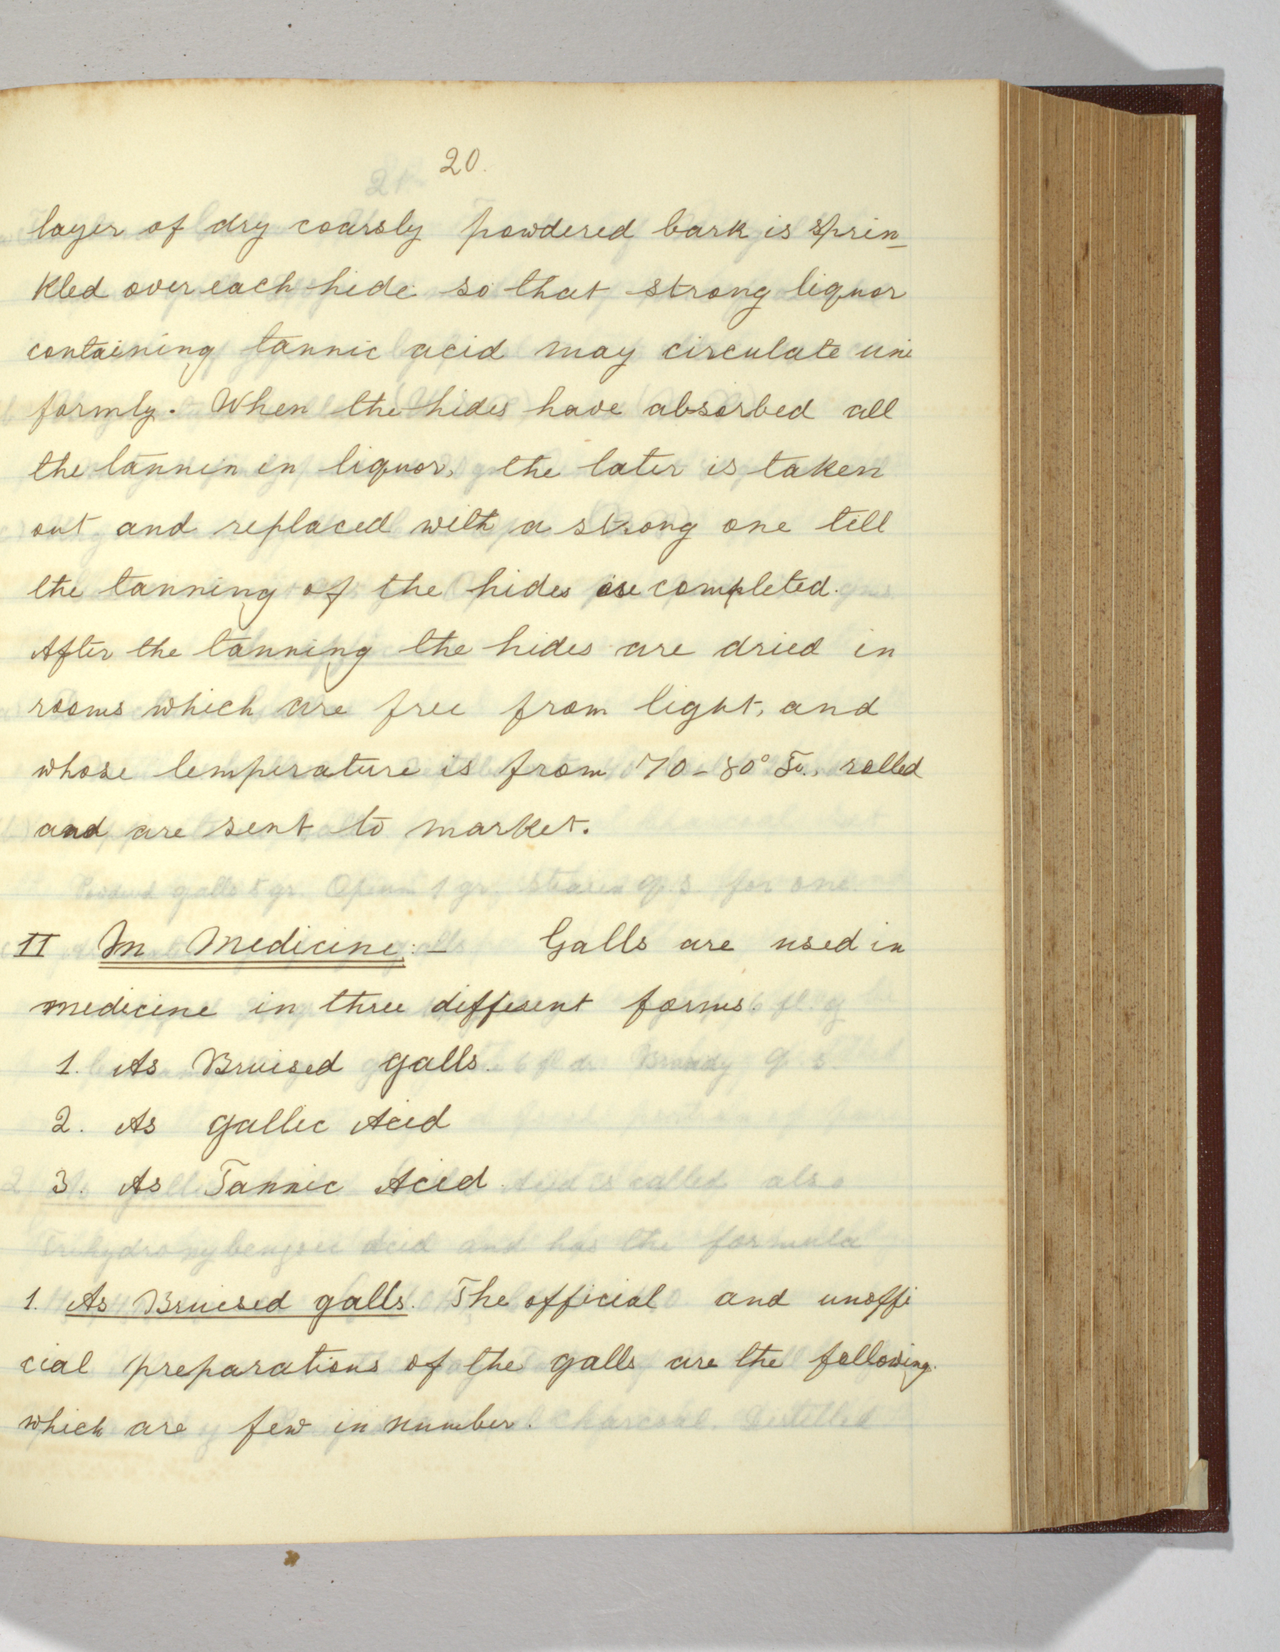 20.
layer of dry coarsly powdered bark is sprin-
kled over each hide so that strong liquor
containing tannic acid may circulate uni
formly. When the hides have absorbed all
the tannin in liquor, the later is taken
out and replaced with a strong one till
the tanning of the hides is completed.
After the tanning the hides are dried in
rooms which are free from light, and
whose temperature is from 70-80° Fr., rolled
and are sent to market.
II In Medicine:- Galls are used in
medicine in three different forms.
1. As Bruised galls.
2. As gallic Acid
3. As Tannic Acid.
1. As Bruised galls. The official and unoffi
cial preparations of the galls are the following.
which are few in number.